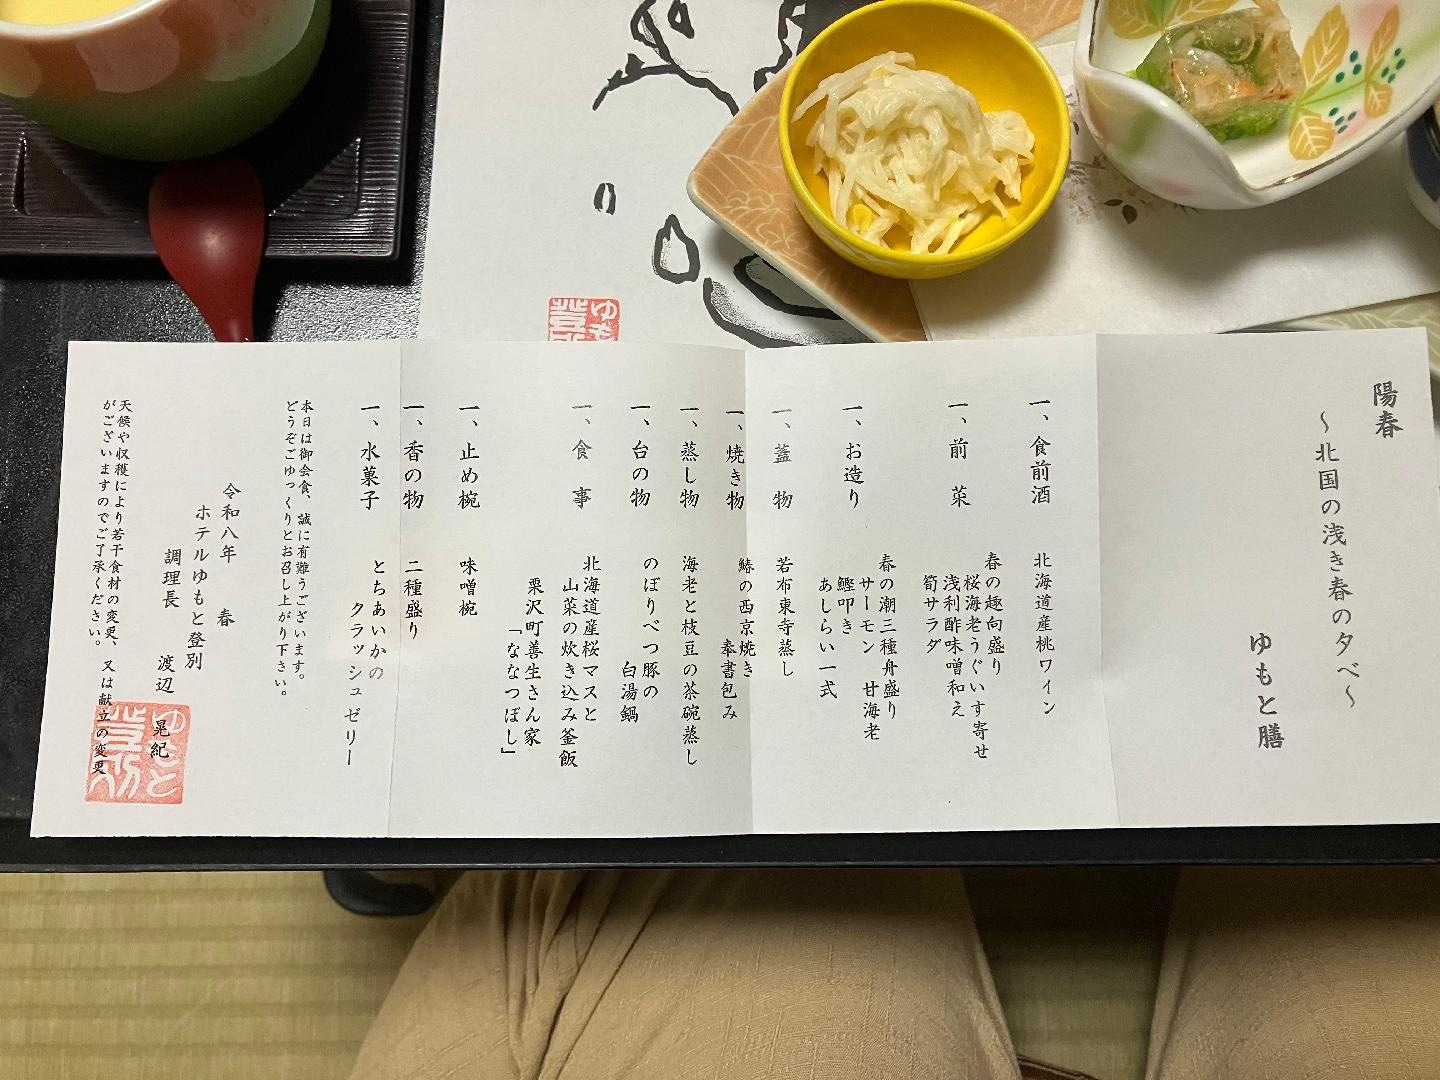 陽春
～北国の浅き春の夕べ～
ゆもと膳
一、食前酒
北海道産桃ワイン
一、前菜
春の趣向盛り
桜海老うぐいす寄せ
浅利酢味噌和え
筍サラダ
一、お造り
春の潮三種舟盛り
サーモン 甘海老
鰹叩き
あしらい一式
一、蓋物
若布東寺蒸し
一、焼き物
鰆の西京焼き
奉書包み
一、蒸し物
海老と枝豆の茶碗蒸し
一、台の物
のぼりべつ豚の
白湯鍋
一、食事
北海道産桜マスと
山菜の炊き込み釜飯
栗沢町善生さん家
「ななつぼし」
一、止め椀
味噌椀
一、香の物
二種盛り
一、水菓子
とちあいかの
クラッシュゼリー
本日は御会食、誠に有難うございます。
どうぞごゆっくりとお召し上がり下さい。
令和八年 春
ホテルゆもと登別
調理長 渡辺 晃紀
天候や収穫により若干食材の変更、又は献立の変更
がございますのでご了承ください。
ゆもと
登別